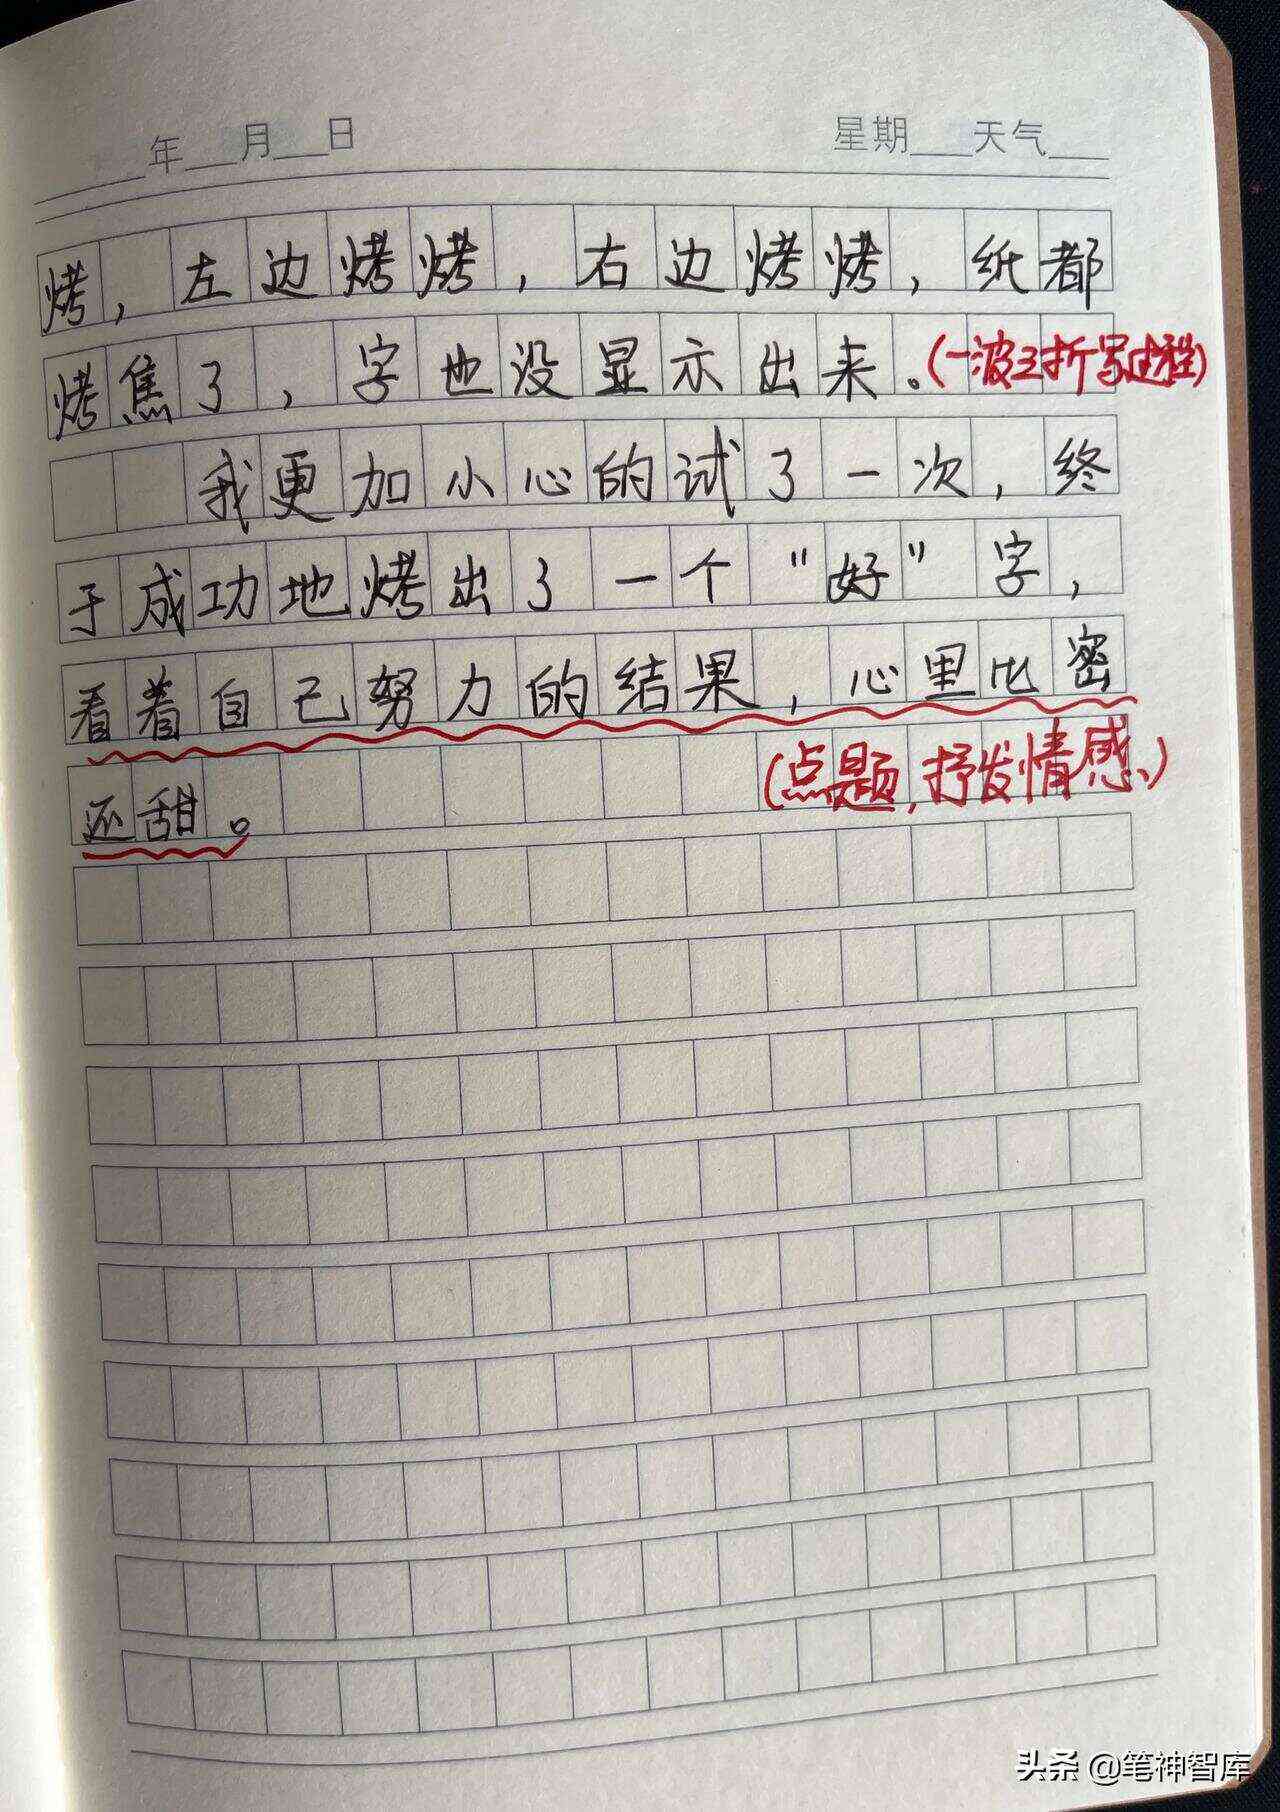 年 月 日 星期 天气
烤，左边烤烤，右边烤烤，纸都
烤焦了，字也没显示出来。(一波三折写过程)
我更加小心的试了一次，终
于成功地烤出了一个“好”字，
看着自己努力的结果，心里比密
还甜。(点题，抒发情感、)
头条 @笔神智库